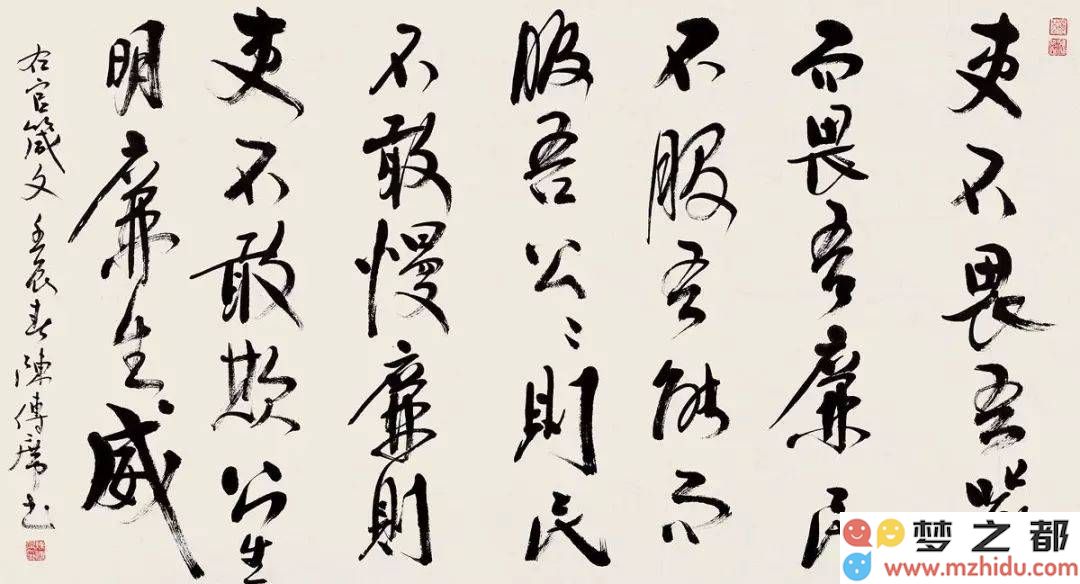 吏不畏吾嚴
而畏吾廉民
不服吾能而
服吾公〻則民
不敢慢廉則
吏不敢欺公生
明廉生威
右官箴文壬辰春陳傳席书
梦之都
www.mzhidu.com